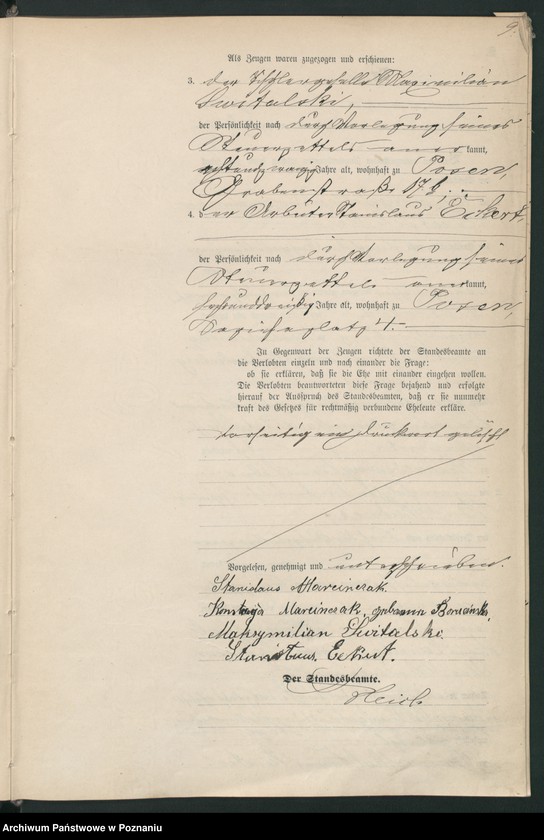 9.
Als Zeugen waren zugezogen und erschienen:
3. der Maximilian
Switalski,
der Persönlichkeit nach durch Vorlegung seines
Steuerzettels anerkannt,
achtundzwanzig Jahre alt, wohnhaft zu Posen,
Grabenstraße
4. der Arbeiter Stanislaus Eckert,
der Persönlichkeit nach durch Vorlegung seines
Steuerzettels anerkannt,
sechsunddreißig Jahre alt, wohnhaft zu Posen,
Sapiehaplatz 4.
In Gegenwart der Zeugen richtete der Standesbeamte an
die Verlobten einzeln und nach einander die Frage:
ob sie erklären, daß sie die Ehe mit einander eingehen wollen.
Die Verlobten beantworteten diese Frage bejahend und erfolgte
hierauf der Ausspruch des Standesbeamten, daß er sie nunmehr
kraft des Gesetzes für rechtmäßig verbundene Eheleute erkläre.
Vorseitig ein Druckwort gelöscht
Vorgelesen, genehmigt und unterschrieben.
Stanislaus Marcinczak.
Marcinczak, geborene
Maksymilian Switalski.
Stanislaus Eckert.
Der Standesbeamte.
Archiwum Państwowe w Poznaniu